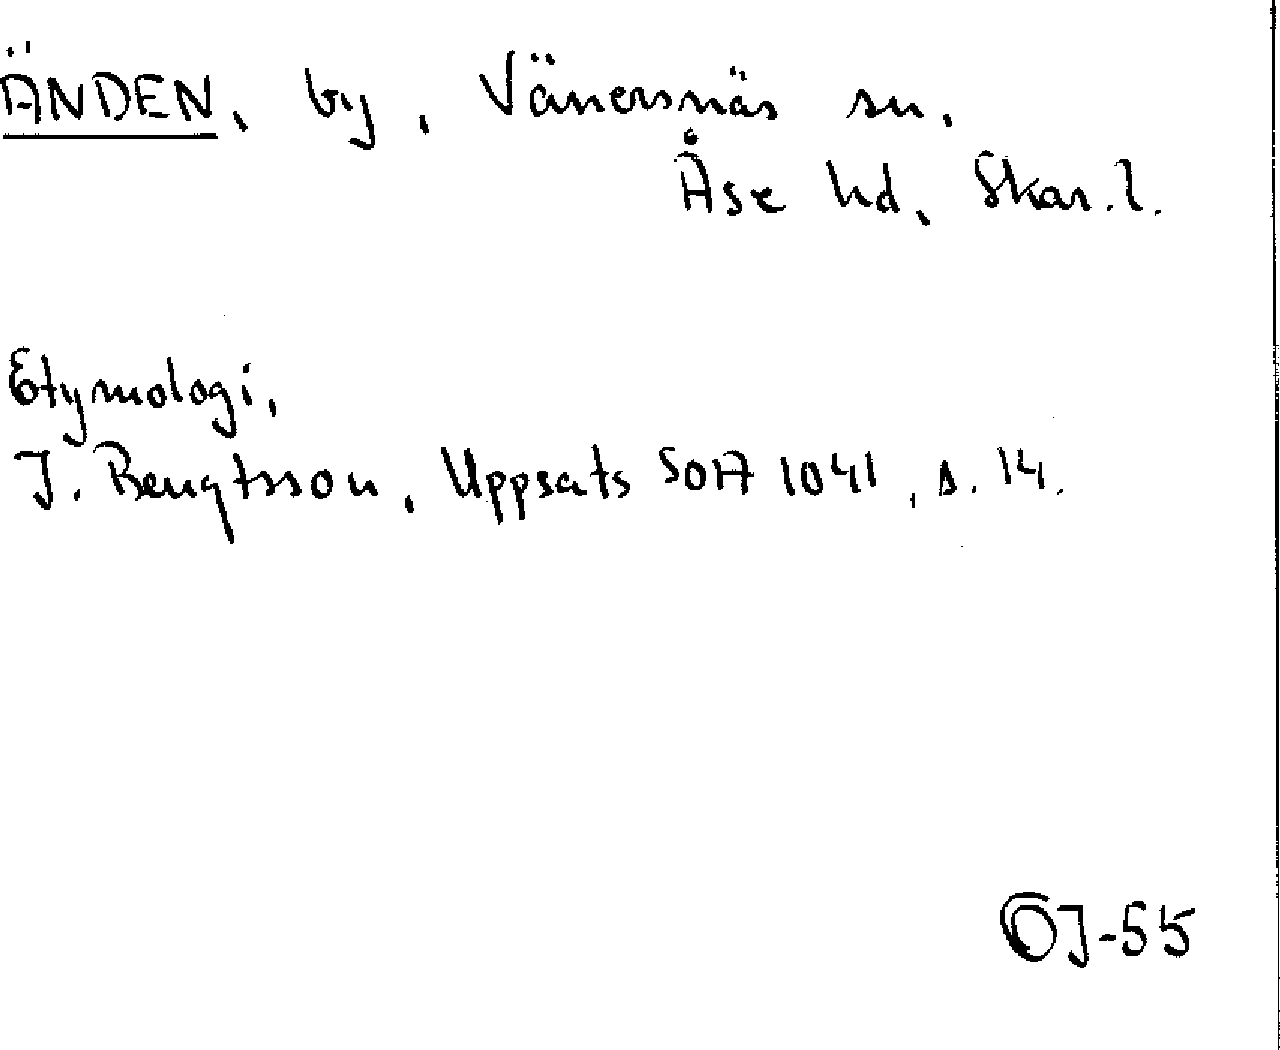 ÄNDEN, by, Vänersnäs sn,
Åse hd, Skar. l.
Etymologi,
J. Bengtsson, Uppsats SOA 1041, s. 14.
ÖJ-55